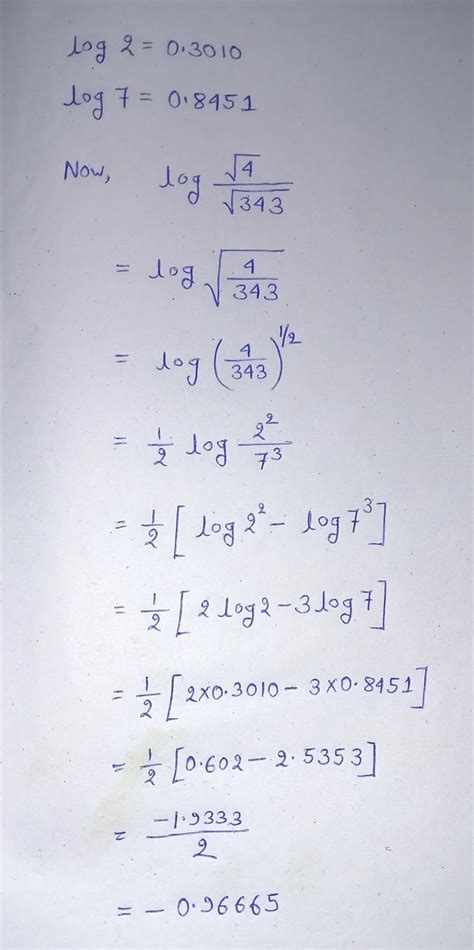 log 2 = 0.3010
log 7 = 0.8451
Now, log √4/√343
= log √(4/343)
= log (4/343)^1/2
= 1/2 log 2²/7³
= 1/2 [log 2² - log 7³]
= 1/2 [2 log 2 - 3 log 7]
= 1/2 [2×0.3010 - 3×0.8451]
= 1/2 [0.602 - 2.5353]
= -1.9333/2
= - 0.96665